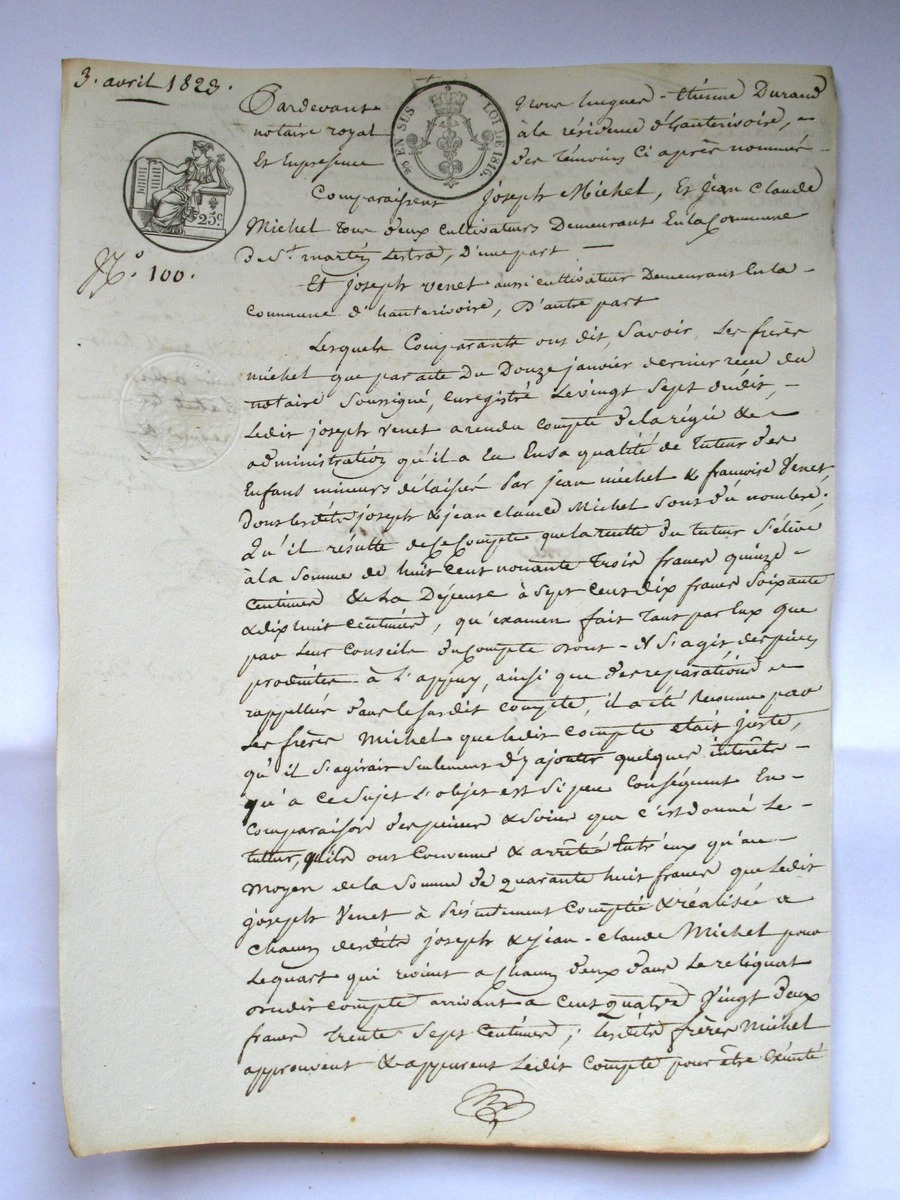 3. avril 1823.
Pardevant Nous Etienne Durand
notaire royal à la résidence d'hauterivoire, -
Et En présence des témoins Ci après nommés -
EN SUS LOI DE 1816.
25c.
N.° 100.
Comparaissent joseph Michel, Et jean Claude
Michel tous deux cultivateurs Demeurant En la Commune
De St. martin Lestra, D'une part —
Et joseph Venet aussi cultivateur Demeurant En la
Commune d'hauterivoire, D'autre part
Lesquels Comparants ont dit, Savoir, Les frères
Michel que par acte Du Douze janvier dernier recu du
notaire Soussigné, Enregistré Le vingt Sept dudit, -
Ledit joseph Venet a rendu Compte de la régie & -
administration qu'il a Eu En sa qualité de tuteur des
Enfans mineurs délaissés Par jean michel & francoise Venet
Dont lesdits joseph & jean claude Michel Sont du nombre;
Qu'il résulte de Ce Compte que la recette du tuteur S'élève
à la Somme de huit Cent nonante trois francs quinze -
Centimes & La Dépense à Sept Cent dix francs Soixante
& dix huit Centimes, qu'examen fait tant par Eux que
par Leur Conseils du Compte dont - il S'agit des pièces
produites à L'appuy, ainsi que des réparations -
rappellées dans le Susdit Compte, il a été reconnu par
Les frères Michel que ledit Compte était juste,
qu'il S'agirait Seulement d'y ajouter quelques intérêts -
qu'à Ce Sujet L'objet est Si peu Conséquent En -
Comparaison des peines & Soins que c'est donné Le -
tuteur, qu'ils ont Convenu & arrêté Entr'eux qu'au -
Moyen de la Somme de quarante huit francs que Ledit
joseph Venet à Présentement Comptée & réalisée a
Chacun desdits joseph & jean - Claude Michel pour
Le quart qui revient a Chacun d'eux dans Le reliquat
dudit Compte arrivant à Cent quatre Vingt deux
francs trente Sept Centimes; lesdits frères Michel
approuvent & appurent Ledit Compte pour être Exécuté